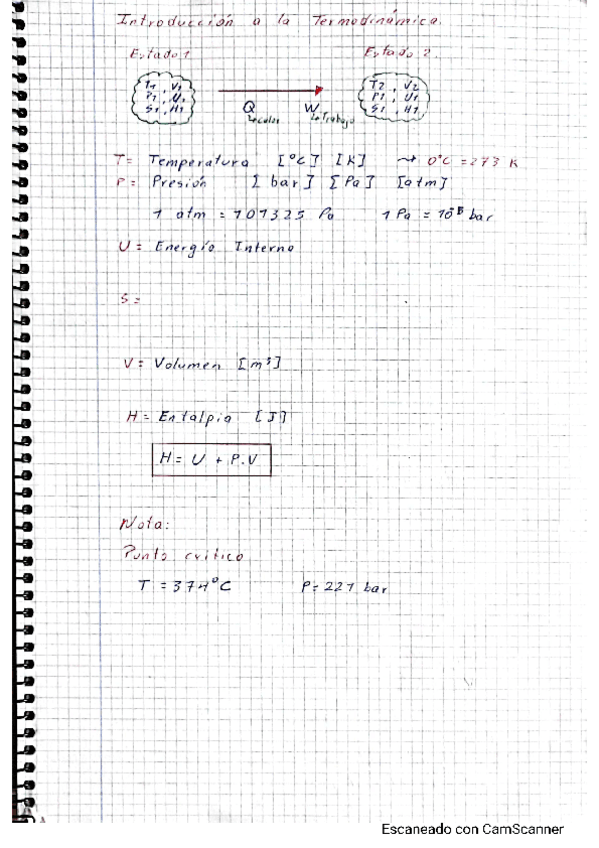 Introducción a la Termodinámica.
Estado 1 Estado 2.
T1, V1 T2, V2
P1, U1 P1, U1
S1, H1 S1, H1
Q W
↳calor ↳Trabajo
T= Temperatura [°C] [K] → 0°C = 273 K
P= Presión [bar] [Pa] [atm]
1 atm = 101325 Pa 1 Pa = 10⁻⁵ bar
U= Energía Interna
S=
V= Volumen [m³]
H= Entalpia [J]
H= U + P.V
Nota:
Punto crítico
T = 374°C P= 221 bar
Escaneado con CamScanner